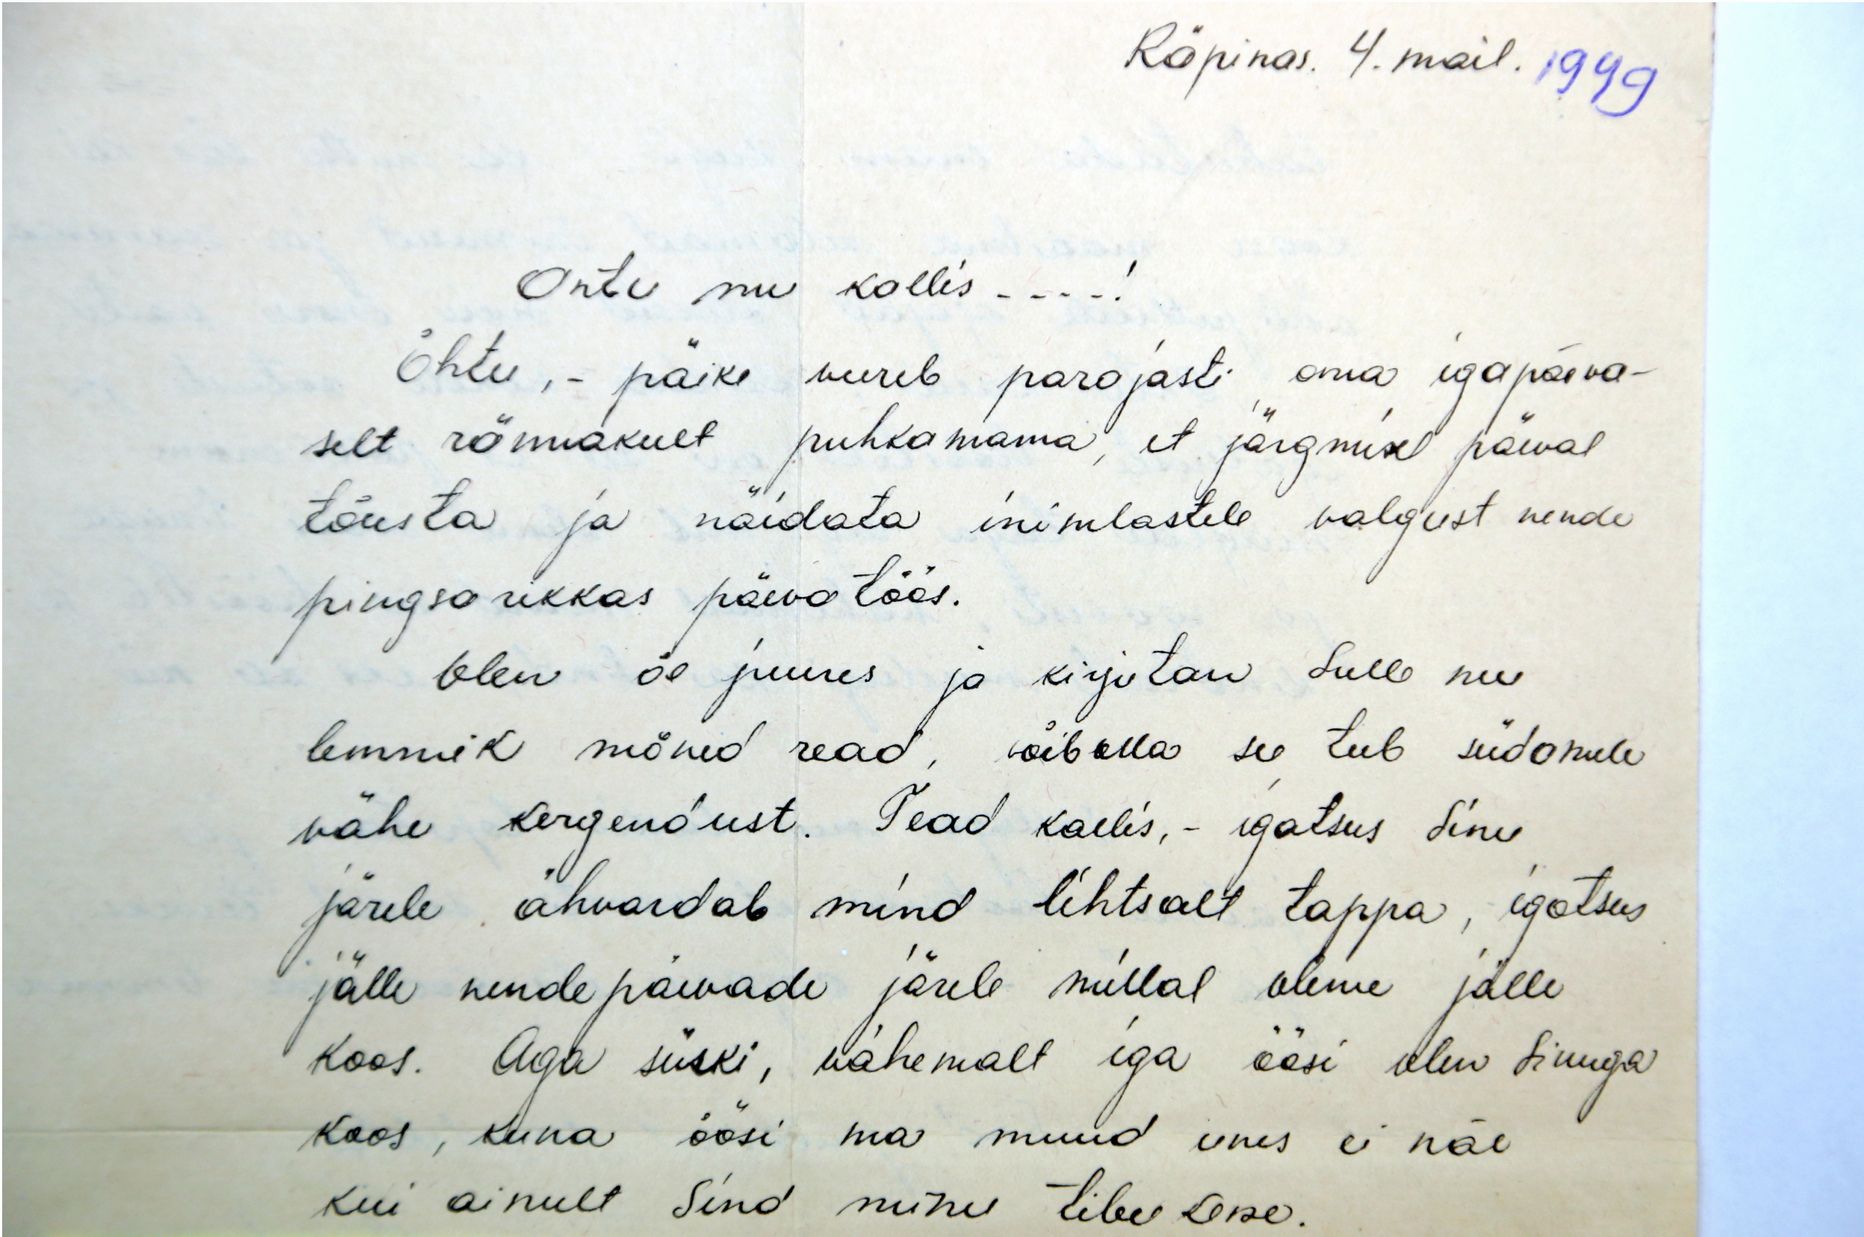 Räpinas. 4. mail. 1949
Ontu mu kallis - - - -!
Õhtu, - päike veereb parajasti oma igapäeva-
selt rännakult puhkamama, et järgmisel päeval
tõusta ja näidata inimlastele valgust nende
pingsarikkas päevatöös.
Olen õe juures ja kirjutan Sulle mu
lemmik mõned read, võibolla see teeb südamele
vähe kergendust. Tead kallis, - igatsus Sinu
järele ähvardab mind lihtsalt tappa, igatsus
jälle nende päevade järele millal oleme jälle
koos. Aga siiski, vähemalt iga öösi olen Sinuga
koos, kuna öösi ma muud unes ei näe
kui ainult Sind minu tibukene.